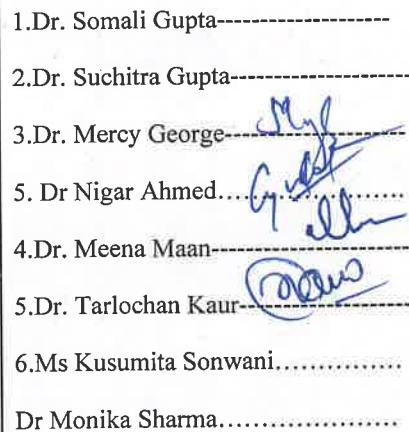 1.Dr. Somali Gupta-------------------
2.Dr. Suchitra Gupta-------------------
3.Dr. Mercy George-------------------
5. Dr Nigar Ahmed....................
4.Dr. Meena Maan--------------------
5.Dr. Tarlochan Kaur-----------------
6.Ms Kusumita Sonwani...............
Dr Monika Sharma....................